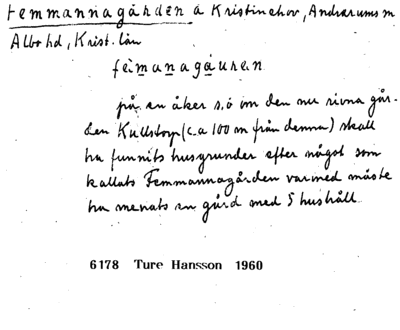 Femmannagården å Kristinehov, Andrarums sn
Albo hd, Krist. län
fèmanagáuren
på en åker s.ö om den nu rivna går-
den Kullstorp (c.a 100 m från denna) skall
ha funnits husgrunder efter något som
kallats Femmannagården varmed måste
ha menats en gård med 5 hushåll.
6178 Ture Hansson 1960